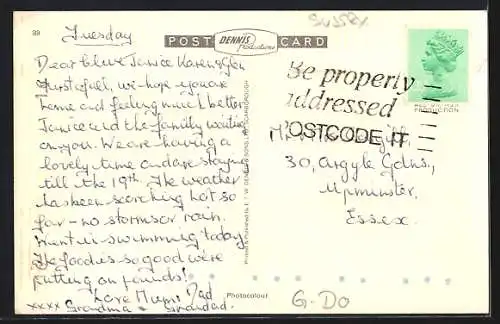 89
Tuesday
POST DENNIS Productions CARD
SUSSEX
Dear Clive Janice Karen & Glen
First of all, we hope you are
home and feeling much better
Janice and the family waiting
on you. We are having a
lovely time and are staying
till the 19th. The weather
has been scorching hot so
far - no storms or rain.
Went in swimming today
The food is so good we're
putting on pounds!
Love Mum & Dad
xxxx Grandma & Grandad.
Be properly
addressed
POSTCODE IT
30, Argyle Gdns,
Upminster,
Essex.
Photocolour
G-DO